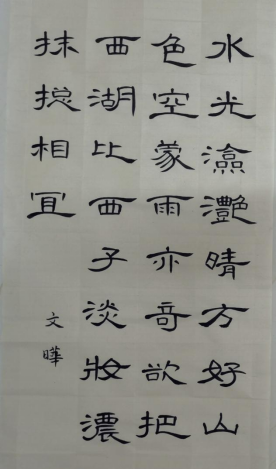 水光瀲灩晴方好山
色空蒙雨亦奇欲把
西湖比西子淡妝濃
抹摠相宜
文曄